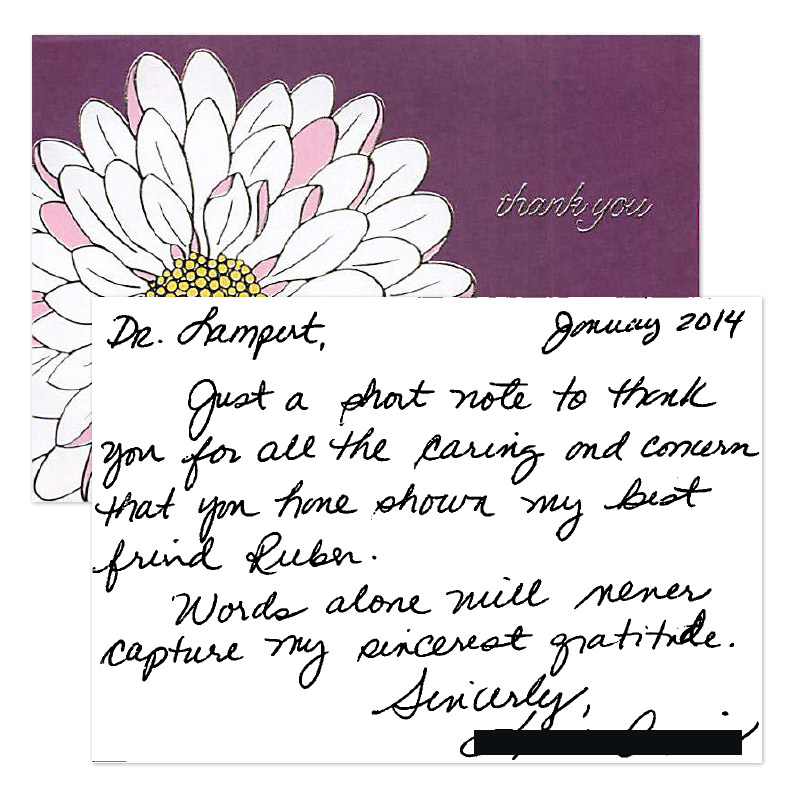 thank you
Dr. Lampert,
January 2014
Just a short note to thank
you for all the caring and concern
that you have shown my best
friend Ruben.
Words alone will never
capture my sincerest gratitude.
Sincerely,